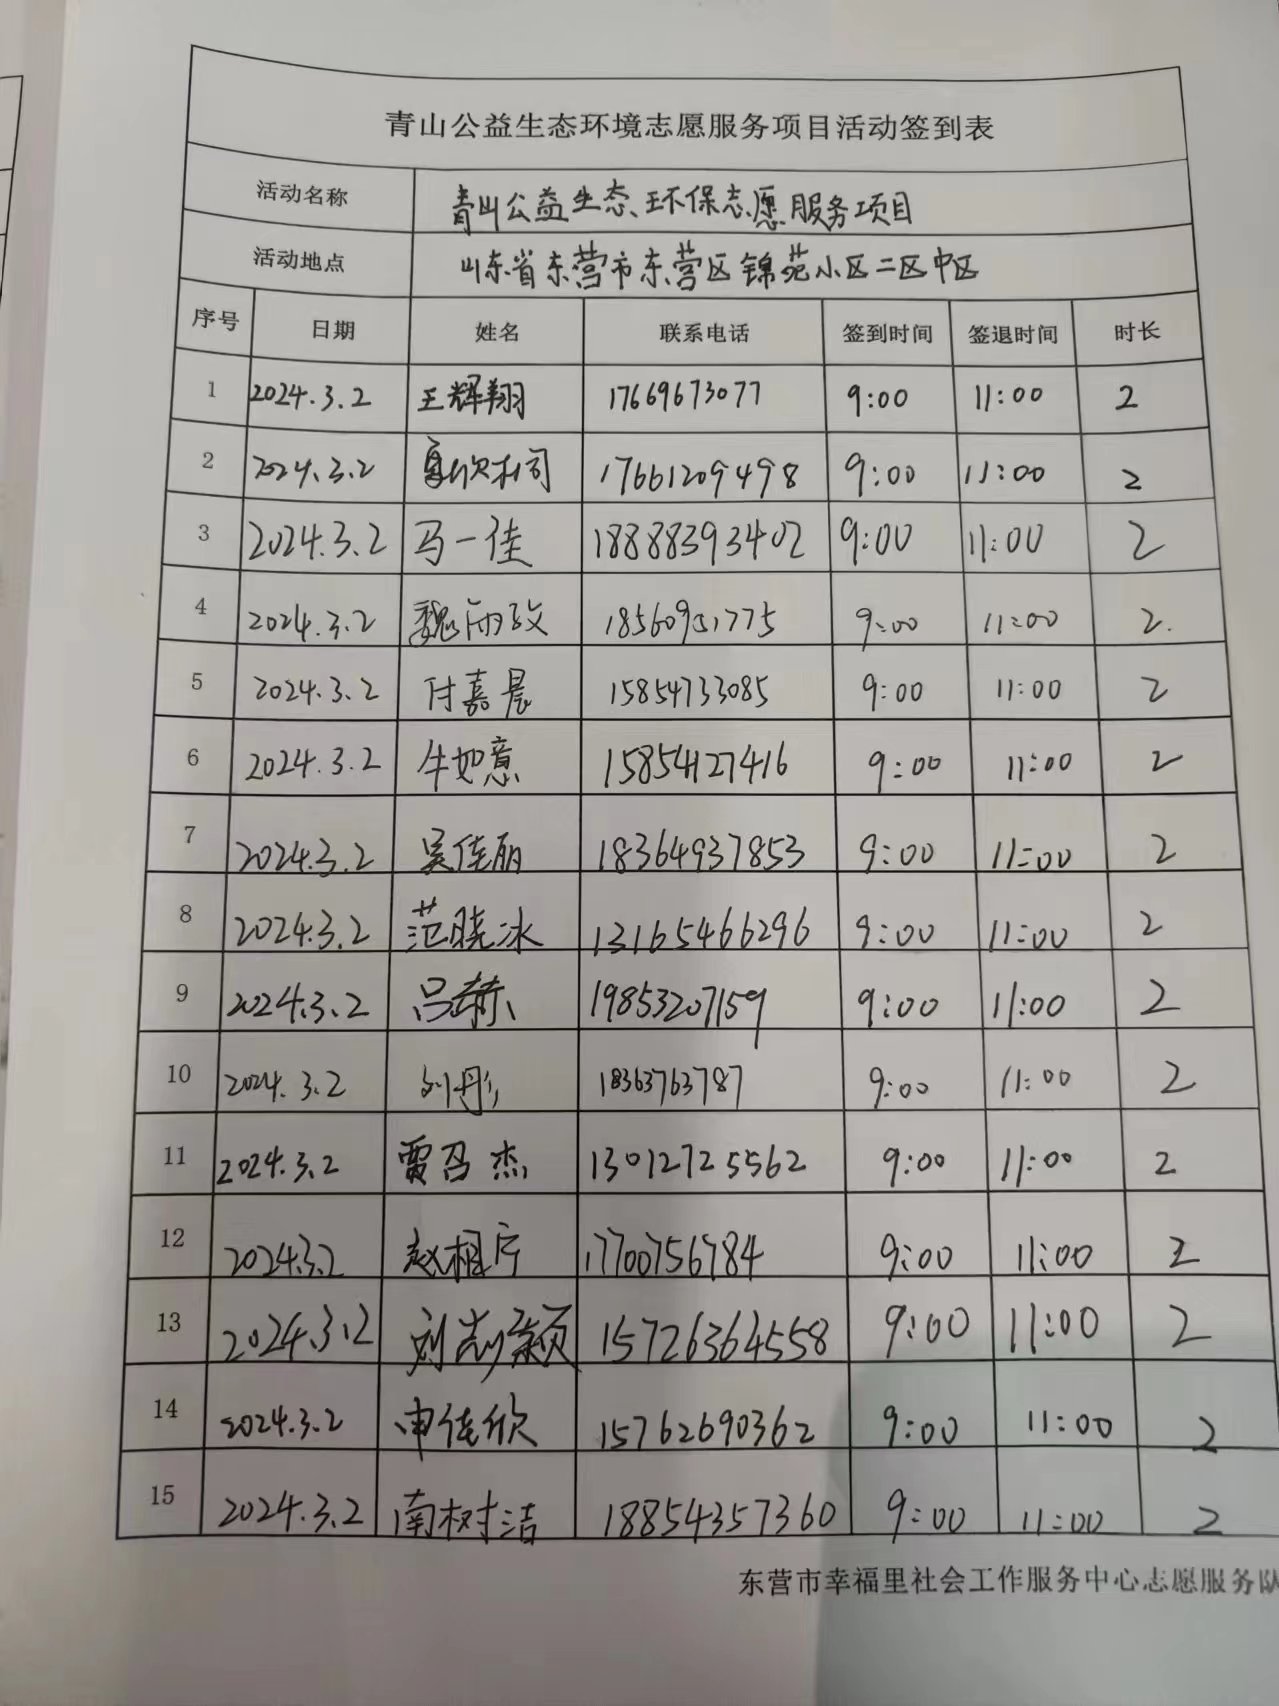 青山公益生态环境志愿服务项目活动签到表
活动名称 青山公益生态环保志愿服务项目
活动地点 山东省东营市东营区锦苑小区二区中区
序号 日期 姓名 联系电话 签到时间 签退时间 时长
1 2024.3.2 王辉翔 17669673077 9:00 11:00 2
2 2024.3.2 17661209498 9:00 11:00 2
3 2024.3.2 马一佳 18888393402 9:00 11:00 2
4 2024.3.2 魏雨玫 9:00 11:00 2.
5 2024.3.2 付嘉晨 15854733085 9:00 11:00 2
6 2024.3.2 牛如意 15854127416 9:00 11:00 2
7 2024.3.2 吴佳丽 18364937853 9:00 11:00 2
8 2024.3.2 范晓冰 13165466296 9:00 11:00 2
9 2024.3.2 19853207159 9:00 11:00 2
10 2024.3.2 刘彤 18363763787 9:00 11:00 2
11 2024.3.2 贾召杰 13012725562 9:00 11:00 2
12 2024.3.2 17700756784 9:00 11:00 2
13 2024.3.2 刘志颖 15726364558 9:00 11:00 2
14 2024.3.2 申佳欣 15762690362 9:00 11:00 2
15 2024.3.2 南树洁 18854357360 9:00 11:00 2
东营市幸福里社会工作服务中心志愿服务队